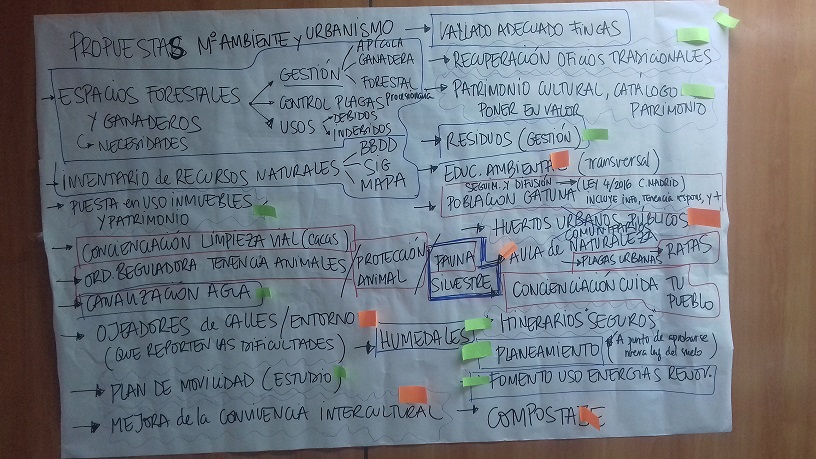 PROPUESTAS Mº AMBIENTE y URBANISMO
ESPACIOS FORESTALES
Y GANADEROS
NECESIDADES
GESTIÓN
APÍCOLA
GANADERA
FORESTAL
CONTROL PLAGAS procesionaria
USOS
DEBIDOS
INDEBIDOS
INVENTARIO de RECURSOS NATURALES
BBDD
SIG
MAPA
PUESTA en USO INMUEBLES
Y PATRIMONIO
CONCIENCIACIÓN LIMPIEZA VIAL (cacas)
ORD. REGULADORA TENENCIA ANIMALES
PROTECCIÓN
ANIMAL
CANALIZACIÓN AGUA
OJEADORES de CALLES/ENTORNO
(QUE REPORTEN LAS DIFICULTADES)
PLAN DE MOVILIDAD (ESTUDIO)
MEJORA de la CONVIVENCIA INTERCULTURAL
FAUNA
SILVESTRE
HUMEDALES
VALLADO ADECUADO FINCAS
RECUPERACIÓN OFICIOS TRADICIONALES
PATRIMONIO CULTURAL, CATÁLOGO
PONER EN VALOR PATRIMONIO
RESIDUOS (GESTIÓN)
EDUC. AMBIENTAL (transversal)
SEGUIM. Y DIFUSIÓN (LEY 4/2016 C. MADRID)
POBLACIÓN GATUNA INCLUYE info, tenencia respons, y +
HUERTOS URBANOS PÚBLICOS
COMUNITARIOS
AULA de NATURALEZA
PLAGAS URBANAS RATAS
CONCIENCIACIÓN CUIDA TU
PUEBLO
ITINERARIOS "SEGUROS"
PLANEAMIENTO (A punto de aprobarse
nueva ley del suelo)
FOMENTO USO ENERGÍAS RENOV.
COMPOSTAJE